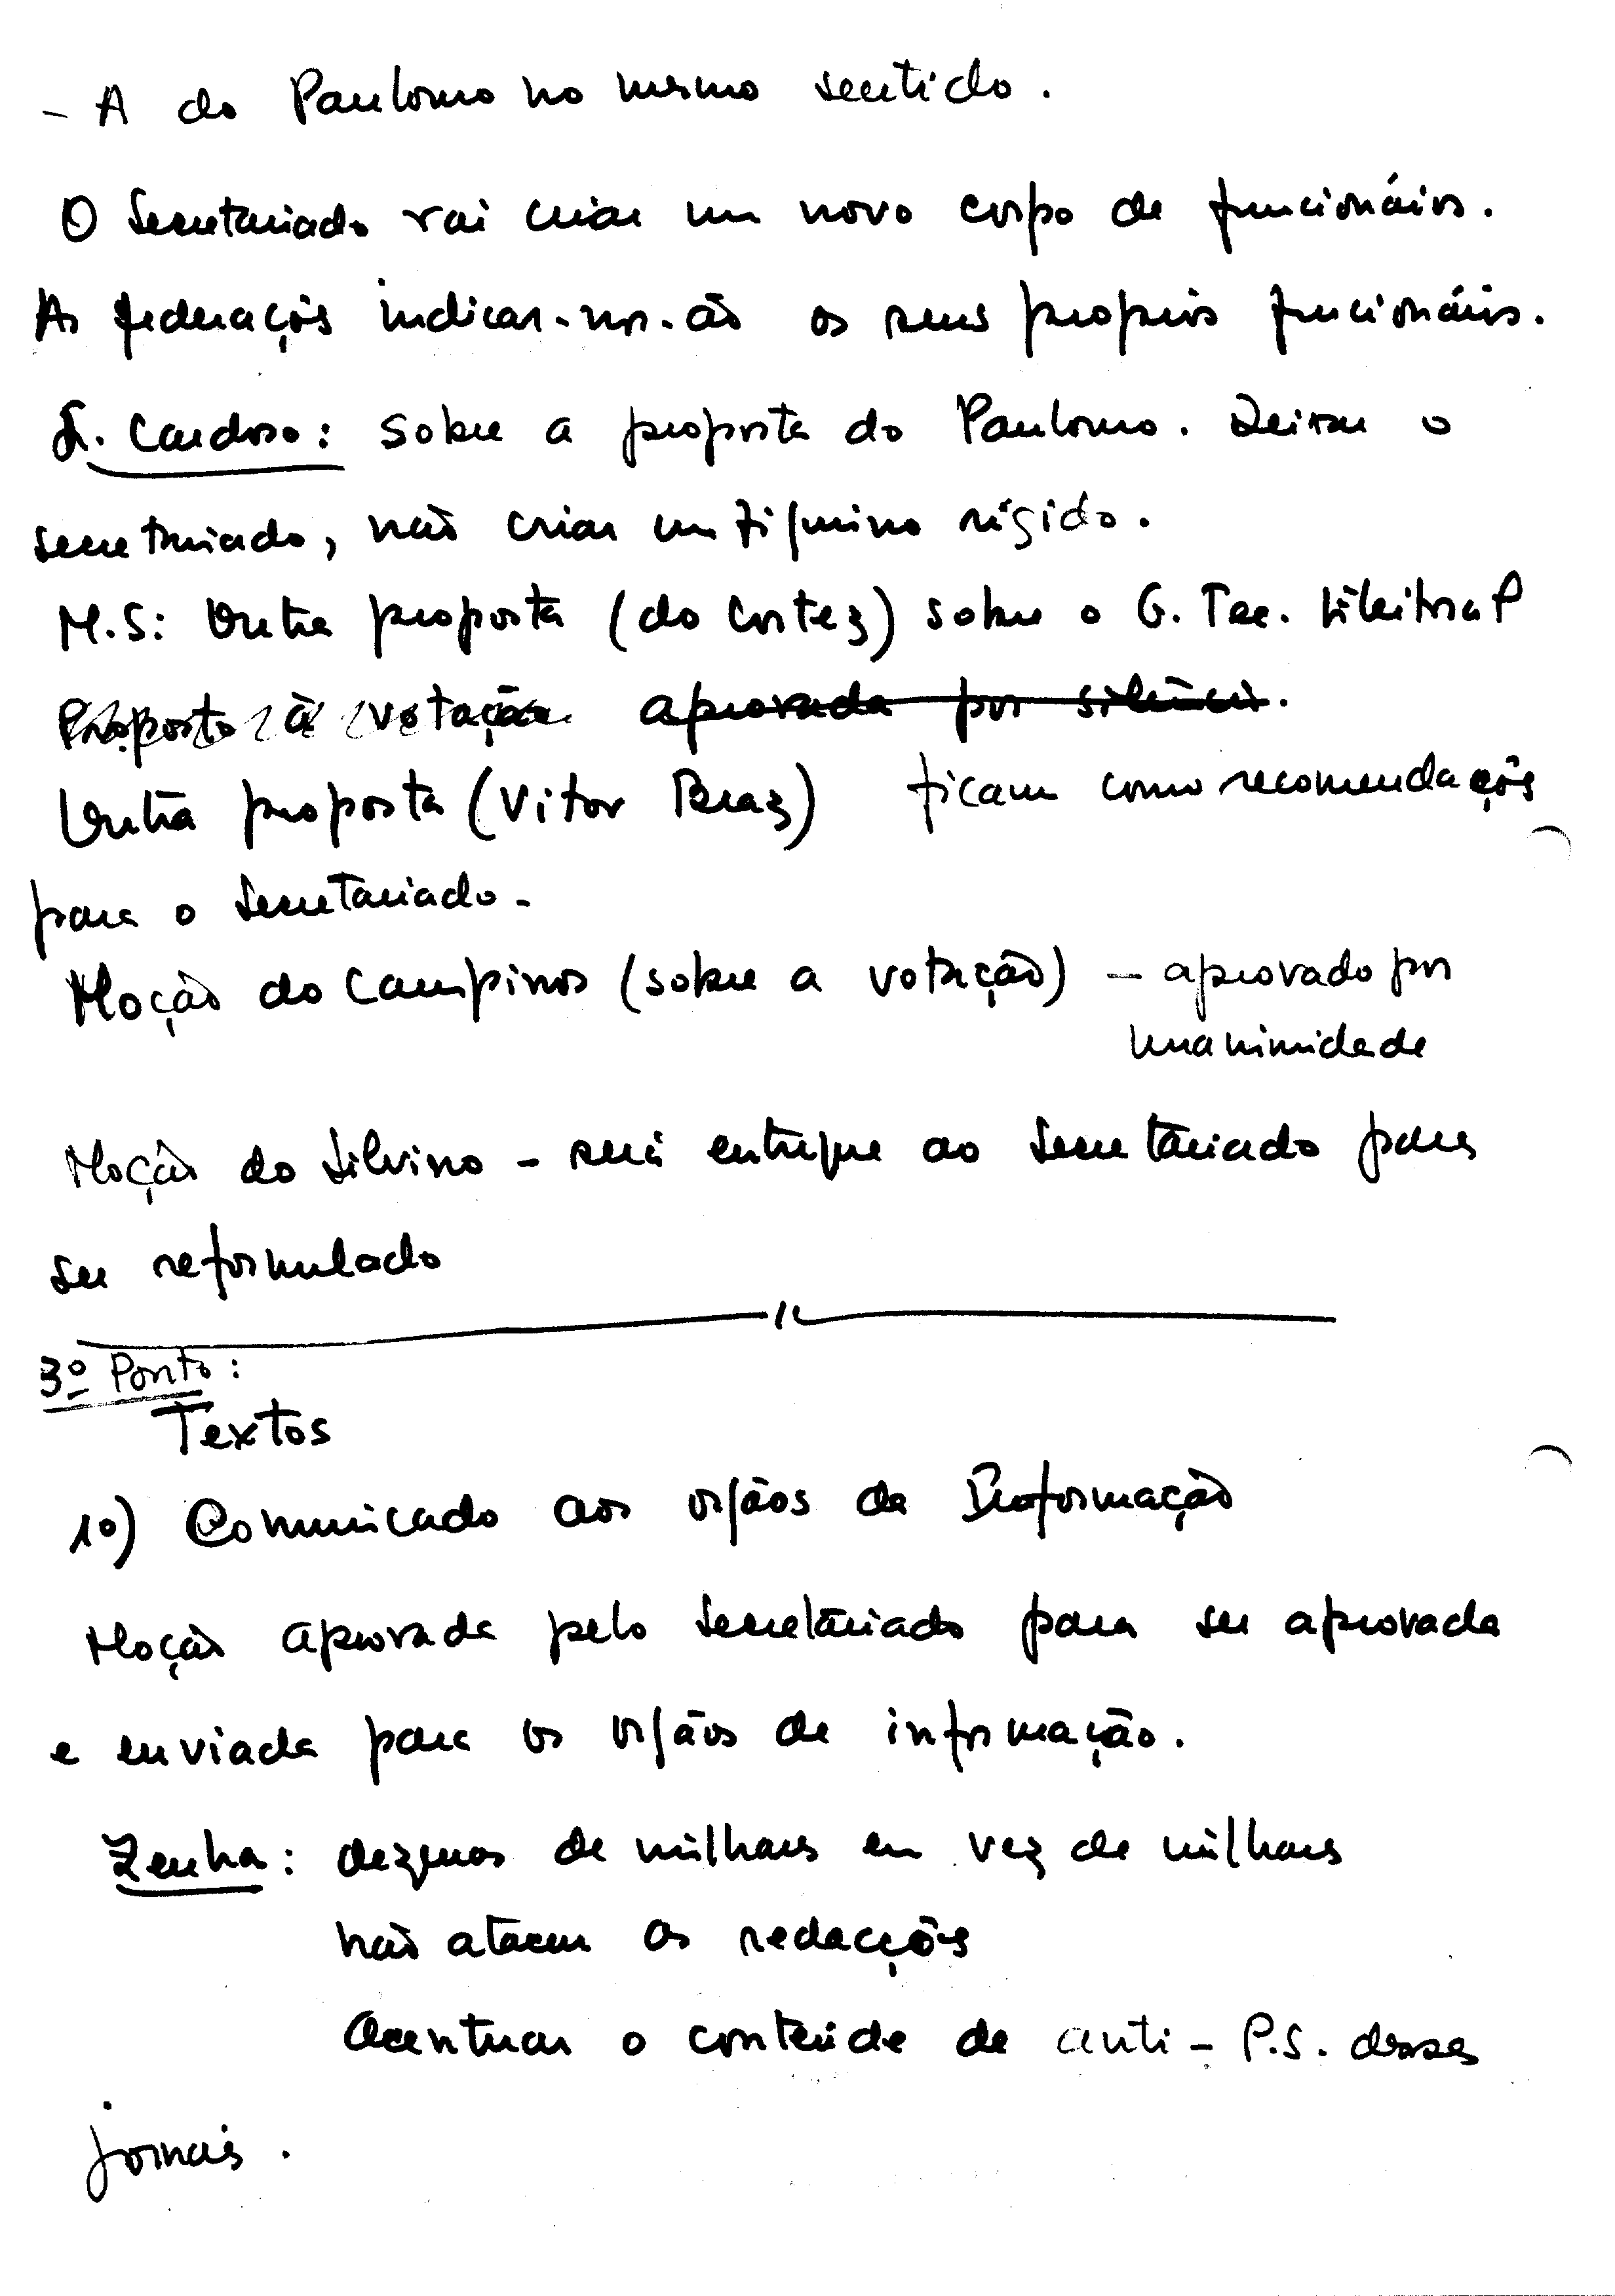 - A do Paulouro no mesmo sentido.
O Secretariado vai criar um novo corpo de funcionários.
As federações indicar-nos-ão os seus proprios funcionários.
S. Cardoso: sobre a proposta do Paulouro. Deixar o
secretariado, não criar um rígido.
M.S: Outra proposta (do Cortez) sobre o G. Tec.
Proposta à votação aprovada por silêncio.
Outra proposta (Vitor Braz) ficam como recomendações
para o Secretariado.
Moção do Campinos (sobre a votação) - aprovado por
unanimidade
Moção do Silvino - será entregue ao Secretariado para
ser reformulado
3º Ponto:
Textos
1º) Comunicado aos orgãos de Informação
Moção aprovada pelo Secretariado para ser aprovada
e enviada para os orgãos de informação.
Zenha: dezenas de milhares em vez de milhares
não atacar as redacções
Acentuar o conteúdo de anti-P.S. desses
jornais.